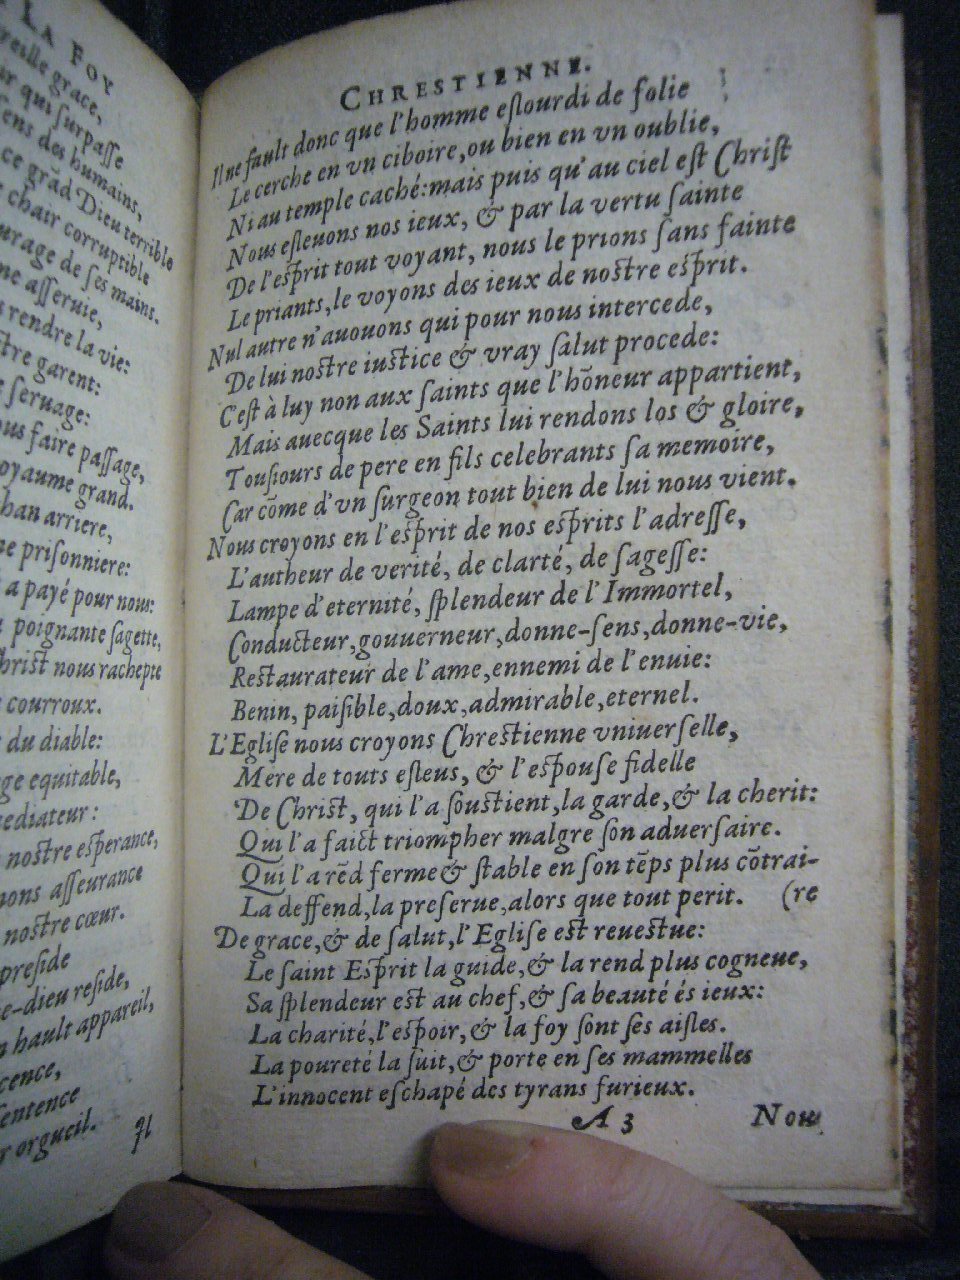 LA FOY
reille grace,
qui surpasse
sens des humains,
ce grãd Dieu terrible
chair corruptible
ourage de ses mains.
asseruie,
rendre la vie:
garent:
seruage:
faire passage,
royaume grand.
arriere,
prisonniere:
a payé pour nous:
poignante sagette,
Christ nous rachepte
courroux.
du diable:
equitable,
mediateur:
nostre esperance,
asseurance
nostre cœur.
preside
reside,
hault appareil,
sentence
orgueil.
Il
CHRESTIENNE.
Il ne fault donc que l'homme eslourdi de folie
Le cerche en vn ciboire, ou bien en vn oublie,
Ni au temple caché: mais puis qu'au ciel est Christ
Nous esleuons nos ieux, & par la vertu sainte
De l'esprit tout voyant, nous le prions sans fainte
Le priants, le voyons des ieux de nostre esprit.
Nul autre n'auouons qui pour nous intercede,
De lui nostre iustice & vray salut procede:
C'est à luy non aux saints que l'hõneur appartient,
Mais auecque les Saints lui rendons los & gloire,
Tousiours de pere en fils celebrants sa memoire,
Car cõme d'vn surgeon tout bien de lui nous vient.
Nous croyons en l'esprit de nos esprits l'adresse,
L'autheur de verité, de clarté, de sagesse:
Lampe d'eternité, splendeur de l'Immortel,
Conducteur, gouuerneur, donne-sens, donne-vie,
Restaurateur de l'ame, ennemi de l'enuie:
Benin, paisible, doux, admirable, eternel.
L'Eglise nous croyons Chrestienne vniuerselle,
Mere de touts esleus, & l'espouse fidelle
De Christ, qui l'a soustient, la garde, & la cherit:
Qui l'a faict triompher malgre son aduersaire.
Qui l'a rẽd ferme & stable en son tẽps plus cõtrai-
La deffend, la preserue, alors que tout perit. (re
De grace, & de salut, l'Eglise est reuestue:
Le saint Esprit la guide, & la rend plus cogneue,
Sa splendeur est au chef, & sa beauté és ieux:
La charité, l'espoir, & la foy sont ses aisles.
La poureté la suit, & porte en ses mammelles
L'innocent eschapé des tyrans furieux.
A 3 Nou